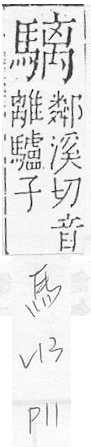 驪
鄰溪切音
離驢子
馬
V13
P11